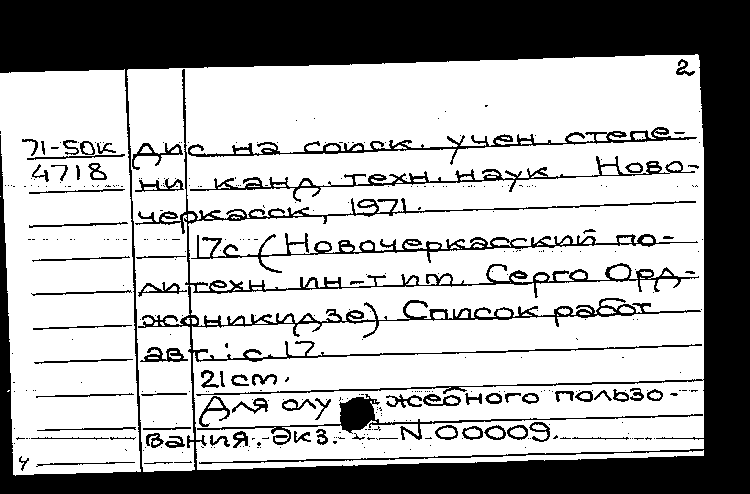 2
71-5ОК
4718
Дис на соиск. учен. степе-
ни канд. техн. наук. Ново-
черкасск, 1971.
17с (Новочеркасский по-
литехн. ин-т им. Серго Орд-
жоникидзе). Список работ
авт.: с. 17.
21 см.
Для служебного пользо-
вания. Экз. N 00009.